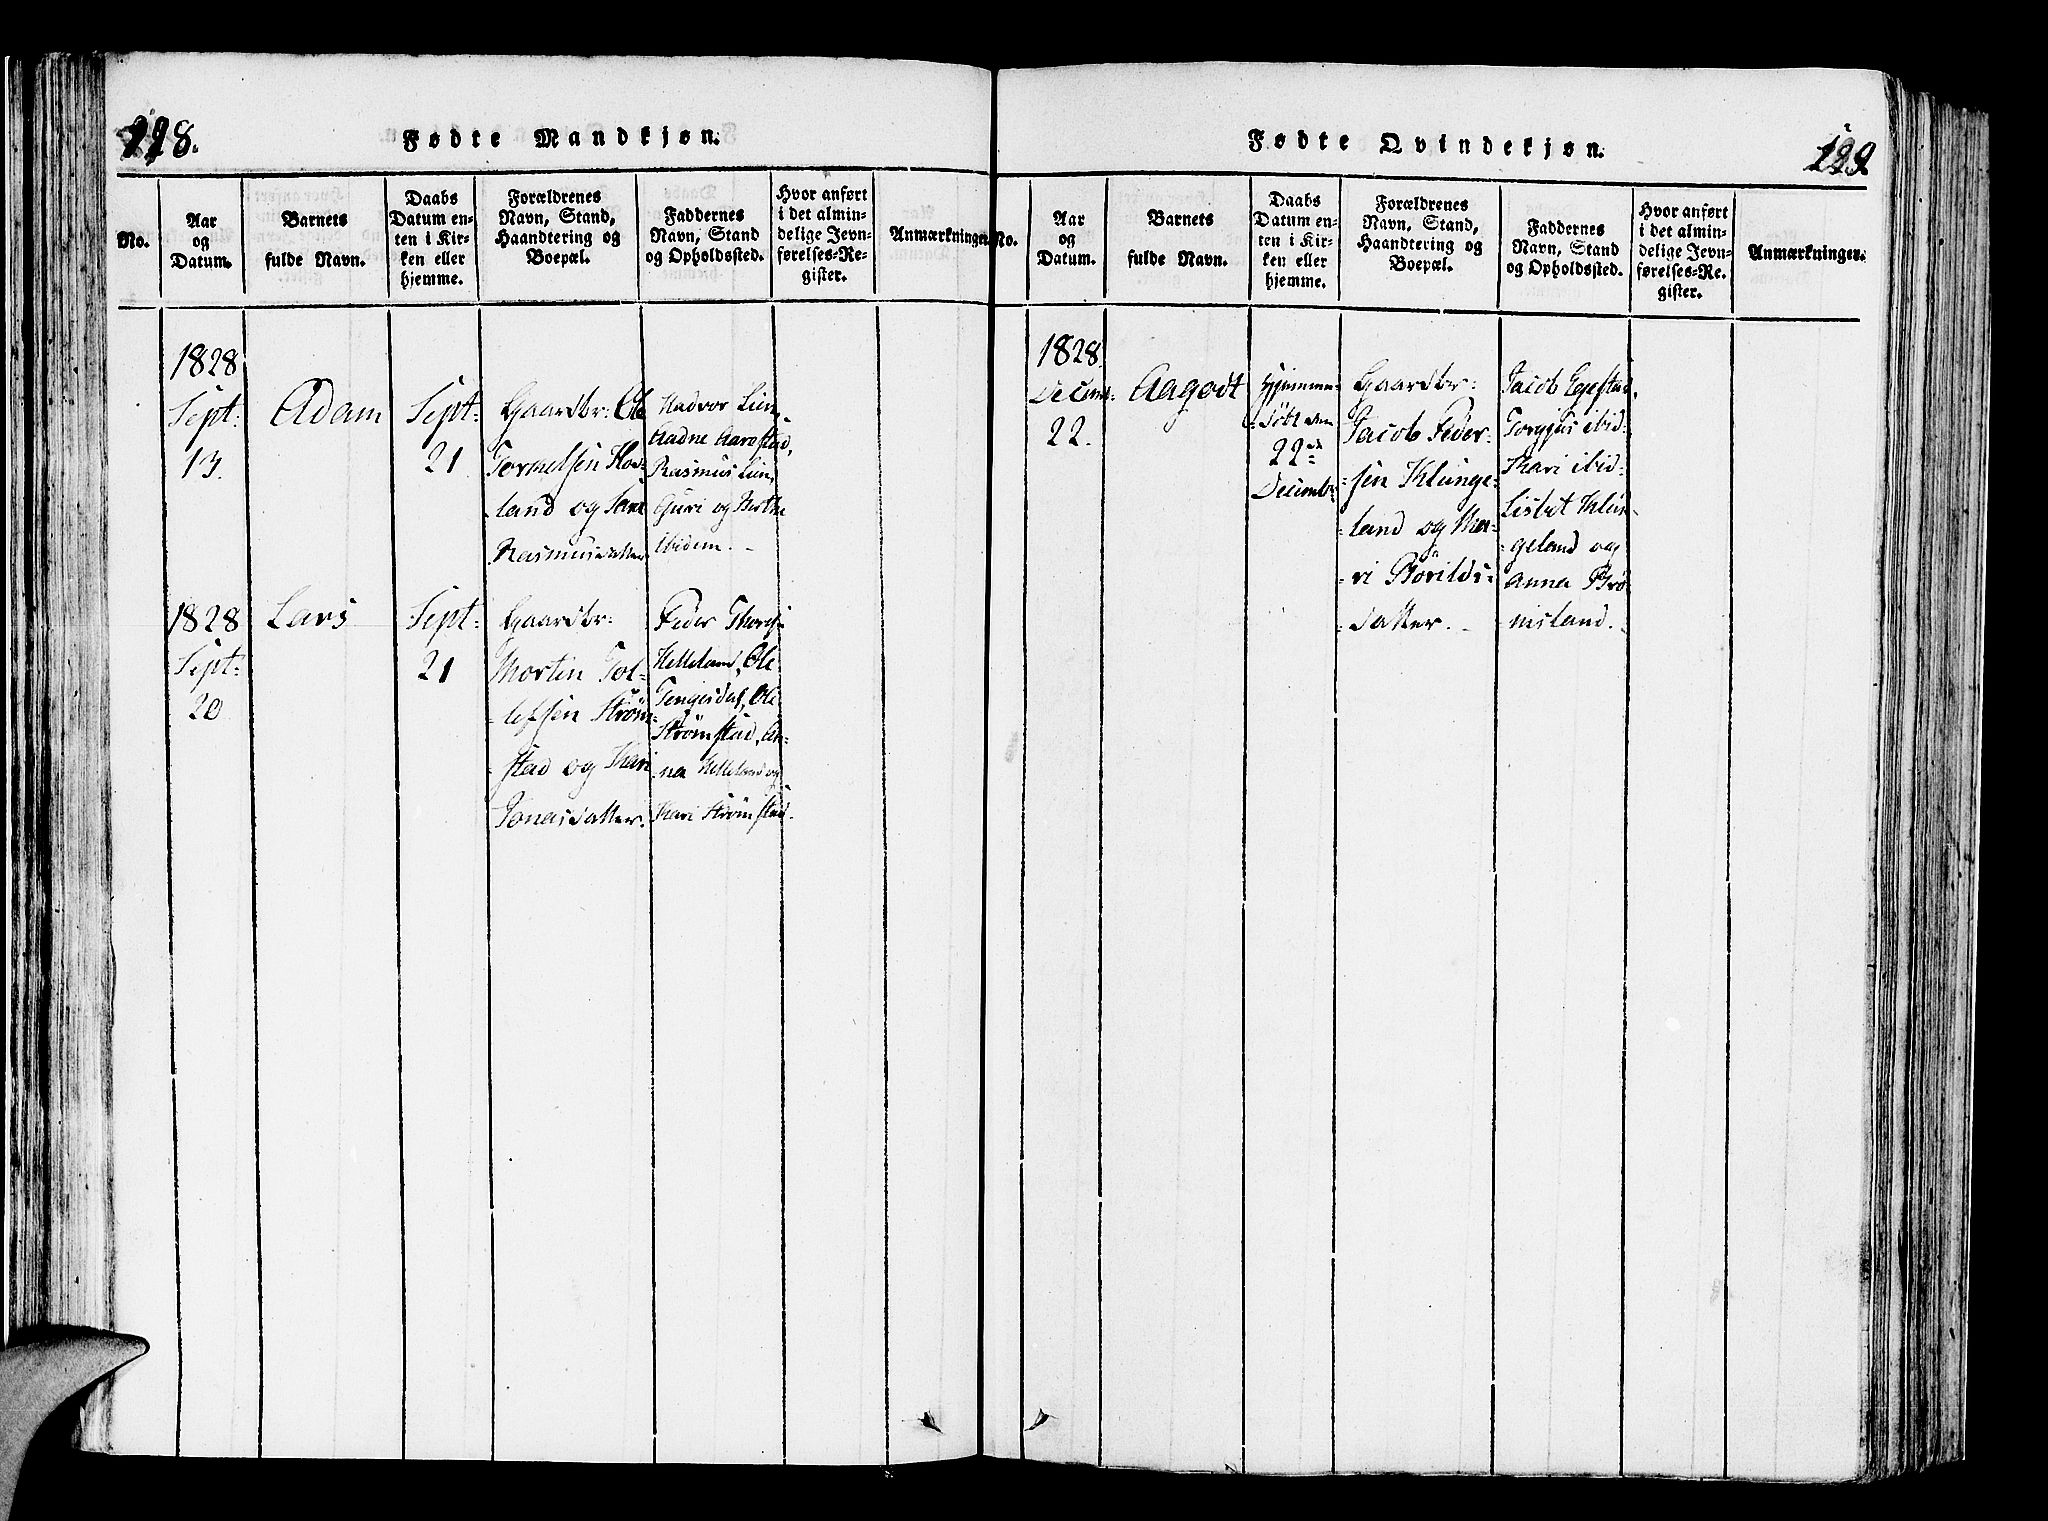 118.
Fødte Mandkjøn.
No.
Aar
og
Datum.
Barnets
fulde Navn.
Daabs
Datum en-
ten i Kir-
ken eller
hjemme.
Forældrenes
Navn, Stand,
Haandtering og
Boepæl.
Faddernes
Navn, Stand
og Opholdssted.
Hvor anført
i det almin-
delige Jevn-
førelses-Re-
gister.
Anmærkninger.
1828
Sept:
13.
Adam
Sept:
21
Gaardbr: Ole
Tormelsen Hov-
land og
Rasmusdatter
Hadvor Lien
Aadne Aarestad,
Rasmus Lien
Guri og Berthe
ibidem.
1828
Sept:
20
Lars
Sept:
21
Gaardbr:
Morten Tol-
lefsen Ström-
stad og Kari
Jonasdatter.
Peder
Helleland, Ole
Tengesdal, Ole
Strömstad, An-
na Helleland og
Kari Strömstad.
Fødte Qvindekjøn.
No.
Aar
og
Datum.
Barnets
fulde Navn.
Daabs
Datum en-
ten i Kir-
ken eller
hjemme.
Forældrenes
Navn, Stand,
Haandtering og
Boepæl.
Faddernes
Navn, Stand
og Opholdssted.
Hvor anført
i det almin-
delige Jevn-
førelses-Re-
gister.
Anmærkninger.
1828
Decemb:
22.
Aagodt
Hjemme-
döbt den
22de
Decembr
Gaardbr:
Jacob Peder-
sen Klunge-
land og Ma-
ri Börilds-
datter.
Jacob Egestad,
Torgjus ibid-
Kari ibid-
Lisbet Klun-
geland og
Anna Brö-
nisland.